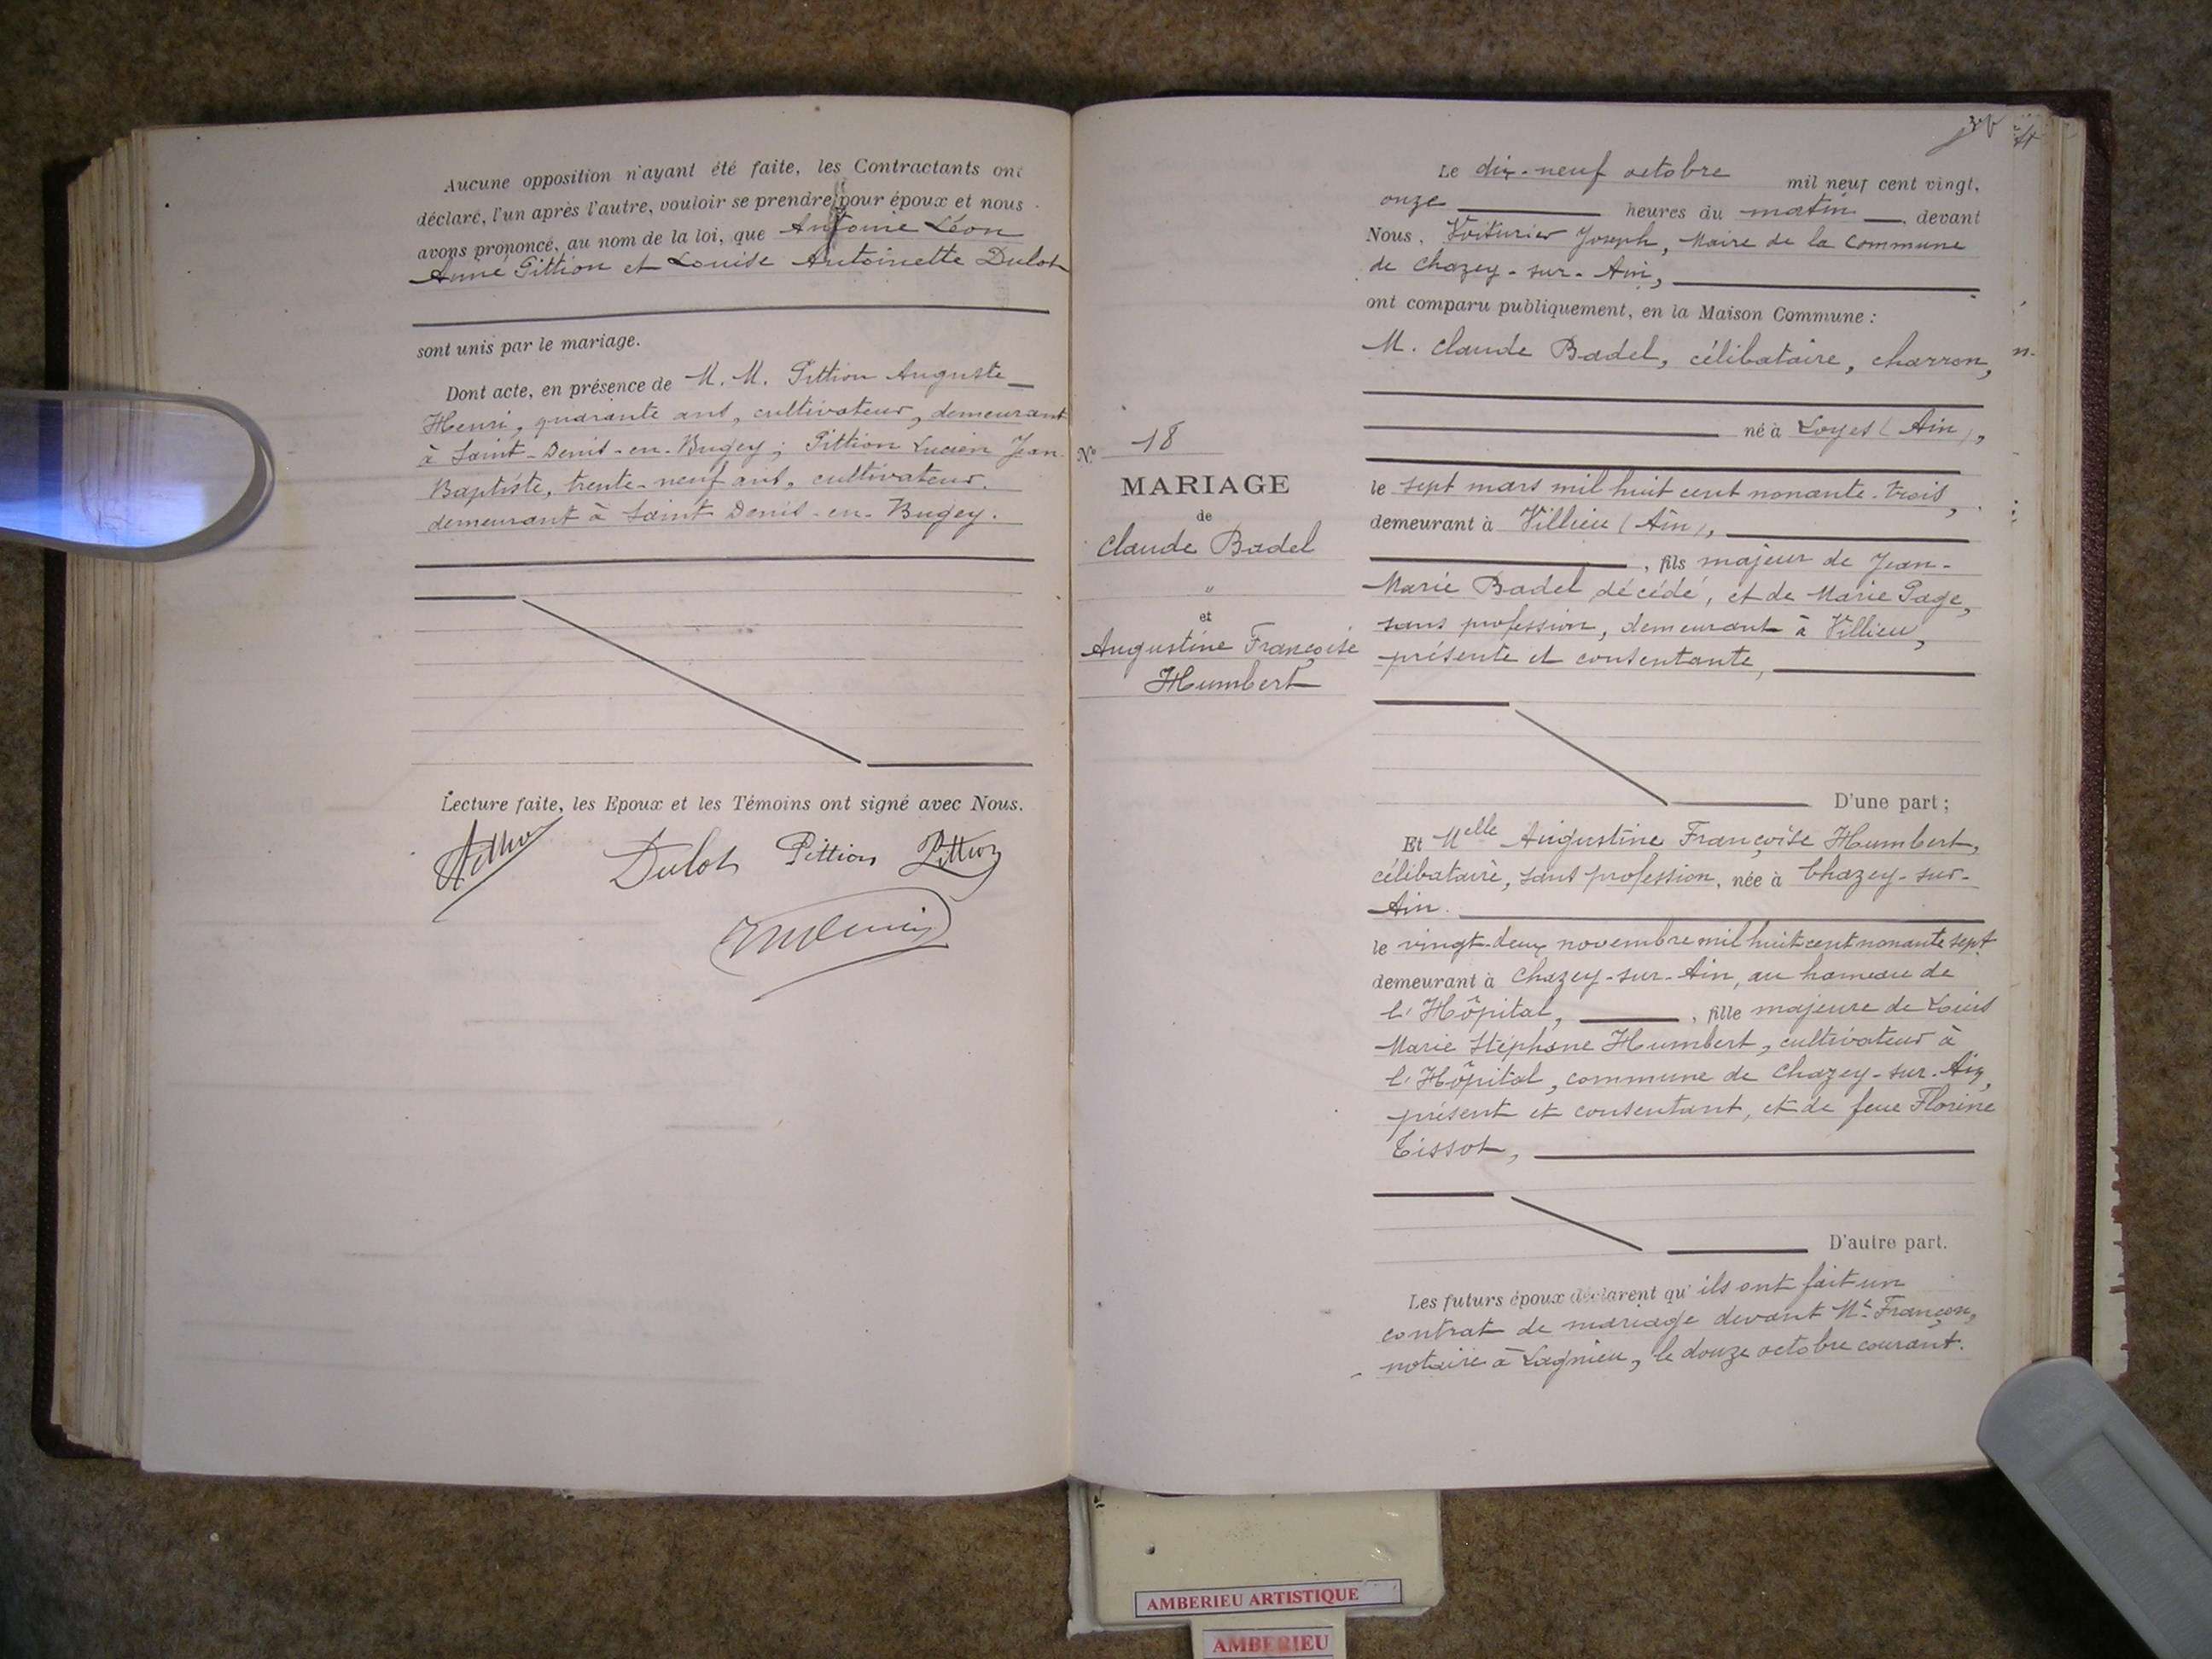 Aucune opposition n'ayant été faite, les Contractants ont
déclaré, l'un après l'autre, vouloir se prendre pour époux et nous
avons prononcé, au nom de la loi, que Antoine Léon
Aimé Pittion et Louise Antoinette Dulot
sont unis par le mariage.
Dont acte, en présence de M. M. Pittion Auguste
Henri, quarante ans, cultivateur, demeurant
à Saint-Denis-en-Bugey; Pittion Lucien Jean-
Baptiste, trente-neuf ans, cultivateur.
demeurant à Saint Denis-en-Bugey.
Lecture faite, les Epoux et les Témoins ont signé avec Nous.
Dulot Pittion Pittion
Le dix-neuf octobre mil neuf cent vingt,
onze heures du matin, devant
Nous, Voiturier Joseph, Maire de la Commune
de Chazey-sur-Ain,
ont comparu publiquement, en la Maison Commune :
M. Claude Badel, célibataire, charron,
né à Loyes (Ain),
le sept mars mil huit cent nonante-trois,
demeurant à Villieu (Ain),
, fils majeur de Jean-
Marie Badel décédé, et de Marie Page,
sans profession, demeurant à Villieu,
présente et consentante,
D'une part ;
N° 18
MARIAGE
de
Claude Badel
"
et
Augustine Françoise
Humbert
Et Melle Augustine Françoise Humbert,
célibataire, sans profession, née à Chazey-sur-
Ain.
le vingt-deux novembre mil huit cent nonante sept
demeurant à Chazey-sur-Ain, au hameau de
l'Hôpital, , fille majeure de Louis
Marie Stéphane Humbert, cultivateur à
l'Hôpital, commune de Chazey-sur-Ain,
présent et consentant, et de feue Florine
Tissot,
D'autre part.
Les futurs époux déclarent qu'ils ont fait un
contrat de mariage devant Me Françon,
notaire à Lagnieu, le douze octobre courant.
AMBERIEU ARTISTIQUE
AMBERIEU